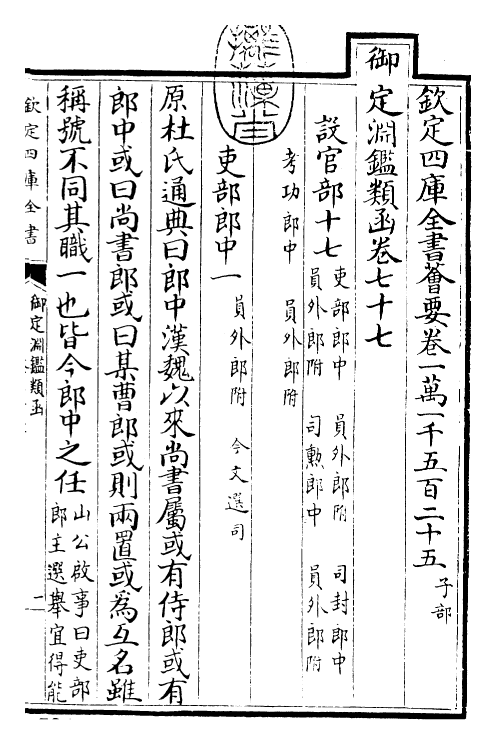 欽定四庫全書薈要卷一萬一千五百二十五 子部
御定淵鑑類函卷七十七
設官部十七 吏部郎中 員外郎附 司封郎中
員外郎附 司勲郎中 員外郎附
考功郎中 員外郎附
吏部郎中一 員外郎附 今文選司
原杜氏通典曰郎中漢魏以來尚書屬或有侍郎或有
郎中或曰尚書郎或曰某曹郎或則兩置或為互名雖
稱號不同其職一也皆今郎中之任 山公啟事曰吏部
郎主選舉宜得能
欽定四庫全書
御定淵鑑類函